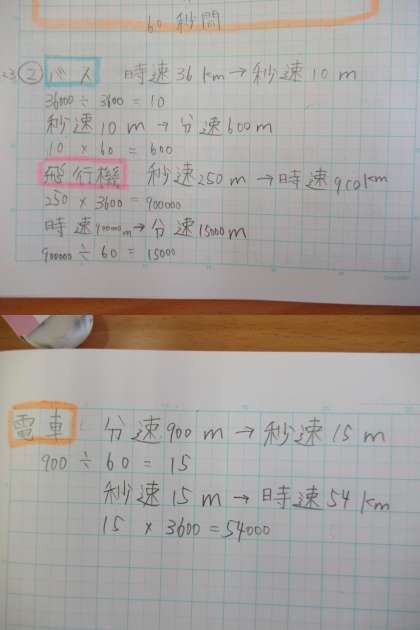 60 秒間
23 ② バス 時速36km→秒速10m
36000÷3600=10
秒速10m→分速600m
10×60=600
飛行機 秒速250m→時速900km
250×3600=900000
時速900000m→分速15000m
900000÷60=15000
電車 分速900m→秒速15m
900÷60=15
秒速15m→時速54km
15×3600=54000